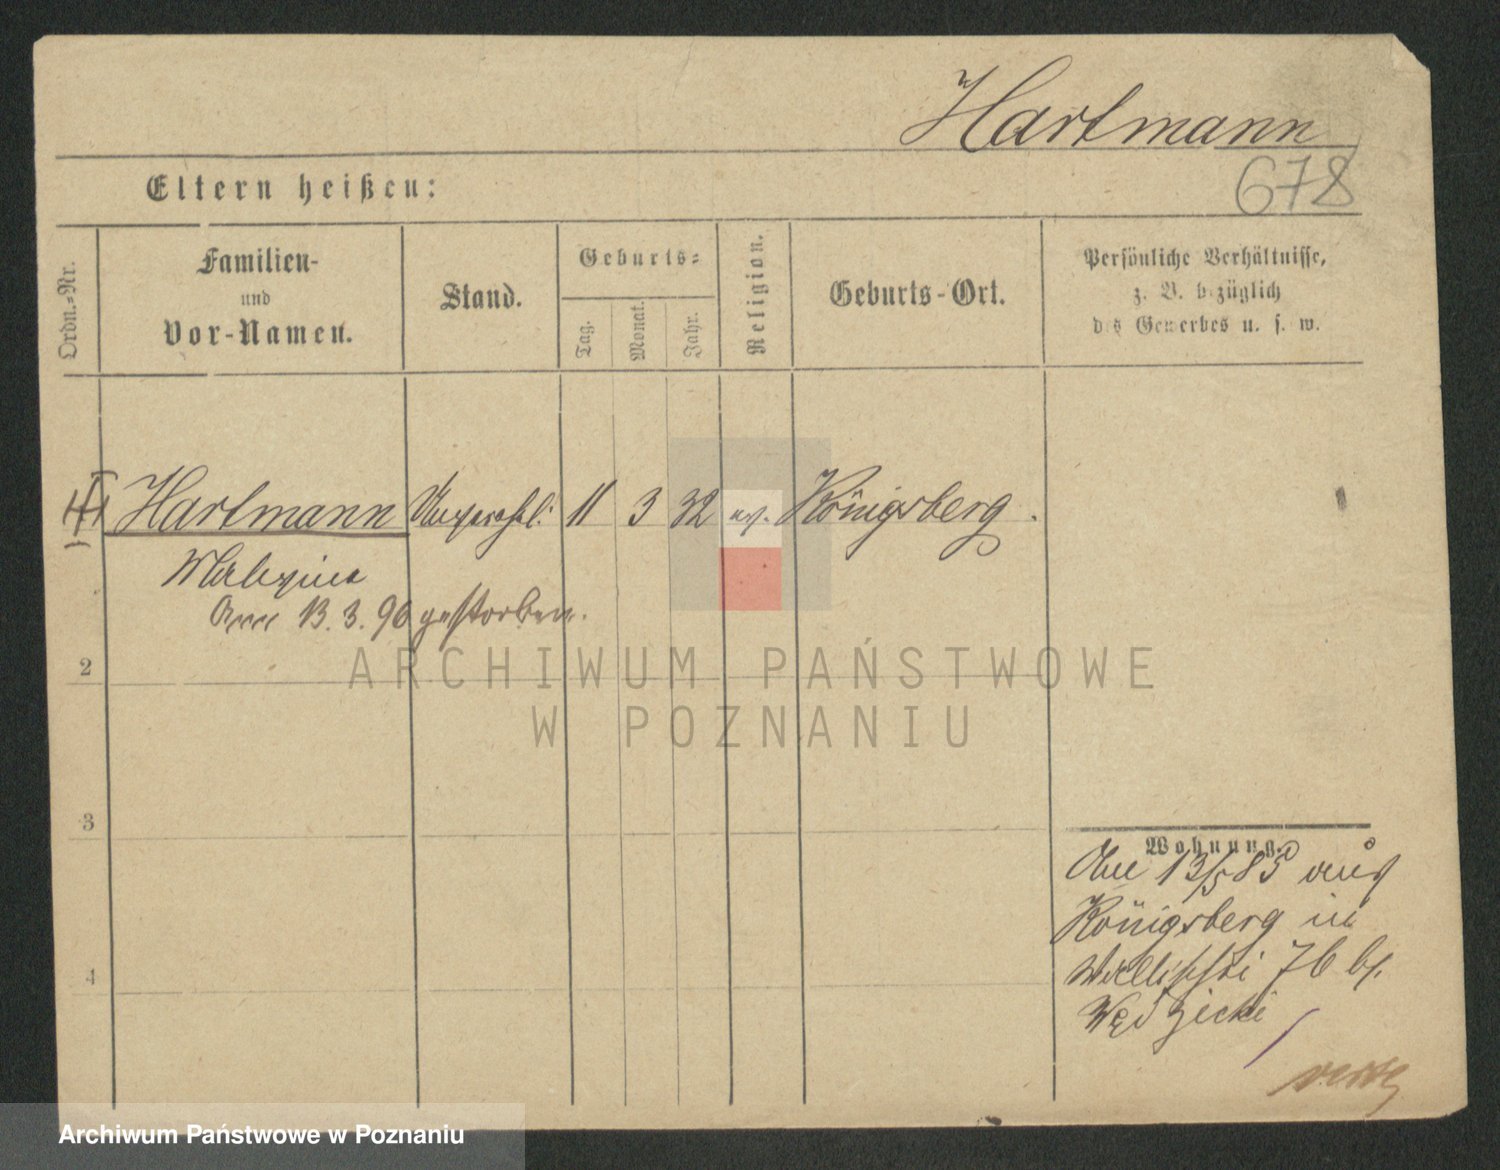 Hartmann
678
Eltern heißen:
Ordn.=Nr.
Familien-
und
Vor-Namen.
Stand.
Geburts=
Tag.
Monat.
Jahr.
Religion.
Geburts-Ort.
Persönliche Verhältnisse,
z. B. bezüglich
des Gewerbes u. s. w.
Hartmann Unverehel. 11 3 32 ev. Königsberg.
am 13.3.96 gestorben.
2
ARCHIWUM PAŃSTWOWE
W POZNANIU
3
Wohnung.
13/5 85 aus
Königsberg in
Wallischei 76 b.
Wędzicki
4
Archiwum Państwowe w Poznaniu